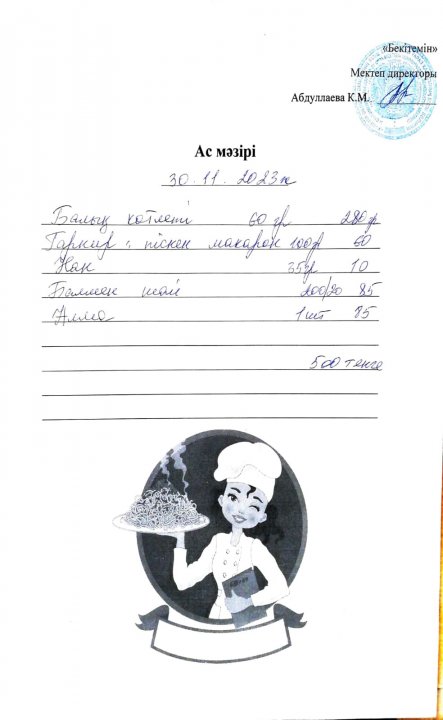 «Бекітемін»
Мектеп директоры
Абдуллаева К.М.
Ас мәзірі
30.11.2023ж
Балық котлеті 60 гр 280 гр
Гарнир: піскен макарон 100гр 60
Нан 35гр 10
Балмен шай 200/20 85
Алма 1 шт 85
500 тенге